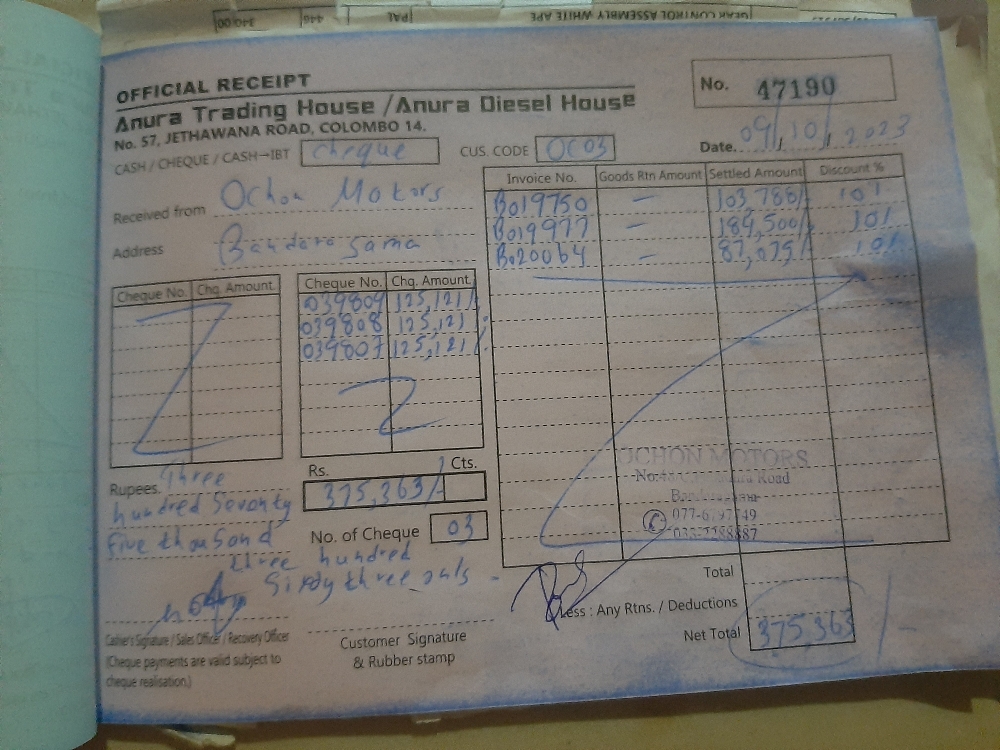 GEAR CONTROL ASSEMBLY WHITE APE PAL 446 340 00
OFFICIAL RECEIPT
Anura Trading House /Anura Diesel House
No. 57, JETHAWANA ROAD, COLOMBO 14.
No. 47190
Date. 09/10/2023
CASH / CHEQUE / CASH-IBT cheque CUS. CODE OC03
Received from Ochon Motors
Address Bandara gama
Invoice No. Goods Rtn Amount Settled Amount Discount %
B019750 — 103,788/- 10%
B019977 — 184,500/- 10%
B020064 — 87,075/- 10%
Cheque No. Chq. Amount Cheque No. Chq. Amount
039809 125,121/-
039808 125,121/-
039807 125,121/-
Rs. Cts.
375,363/-
Rupees. Three
hundred Seventy
five thousand
three hundred
Sixdy three only -
No. of Cheque 03
OCHON MOTORS
Road
077-6797749
Total
Less : Any Rtns. / Deductions
Net Total 375,363/-
Cashier's Signature / Sales Officer / Recovery Officer
(Cheque payments are valid subject to
cheque realisation.)
Customer Signature
& Rubber stamp